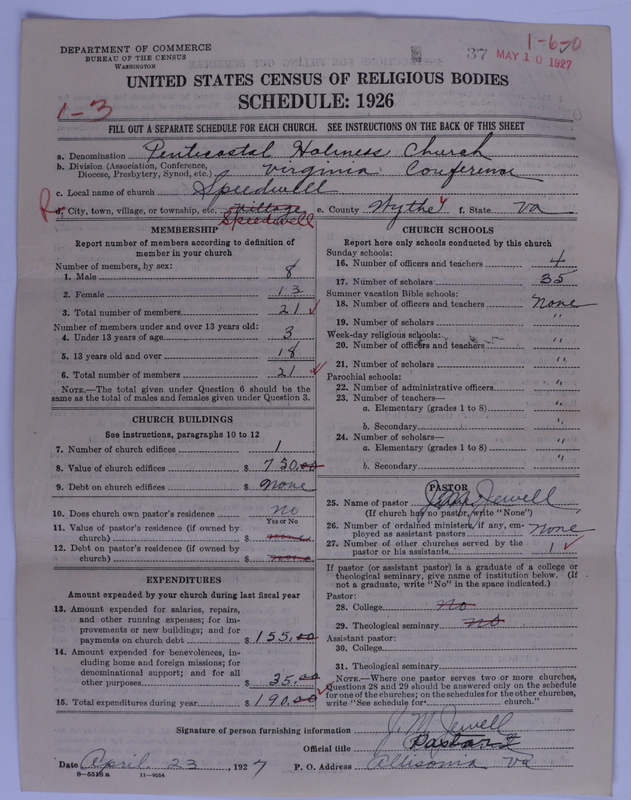 1-6-0
DEPARTMENT OF COMMERCE
BUREAU OF THE CENSUS
WASHINGTON
37 MAY 10 1927
UNITED STATES CENSUS OF RELIGIOUS BODIES
1-3
SCHEDULE: 1926
FILL OUT A SEPARATE SCHEDULE FOR EACH CHURCH. SEE INSTRUCTIONS ON THE BACK OF THIS SHEET
a. Denomination Pentecostal Holiness Church
b. Division (Association, Conference, Diocese, Presbytery, Synod, etc.) Virginia Conference
c. Local name of church Speedwell
d. City, town, village, or township, etc. Village Speedwell e. County Wythe f. State Va
MEMBERSHIP
Report number of members according to definition of member in your church
Number of members, by sex:
1. Male 8
2. Female 13
3. Total number of members 21
Number of members under and over 13 years old:
4. Under 13 years of age 3
5. 13 years old and over 18
6. Total number of members 21
NOTE.—The total given under Question 6 should be the same as the total of males and females given under Question 3.
CHURCH BUILDINGS
See instructions, paragraphs 10 to 12
7. Number of church edifices 1
8. Value of church edifices $ 750.00
9. Debt on church edifices $ None
10. Does church own pastor's residence? no
Yes or No
11. Value of pastor's residence (if owned by church) $
12. Debt on pastor's residence (if owned by church) $
EXPENDITURES
Amount expended by your church during last fiscal year
13. Amount expended for salaries, repairs, and other running expenses; for improvements or new buildings; and for payments on church debt $ 155.00
14. Amount expended for benevolences, including home and foreign missions; for denominational support; and for all other purposes $ 35.00
15. Total expenditures during year $ 190.00
CHURCH SCHOOLS
Report here only schools conducted by this church
Sunday schools:
16. Number of officers and teachers 4
17. Number of scholars 35
Summer vacation Bible schools:
18. Number of officers and teachers None
19. Number of scholars "
Week-day religious schools:
20. Number of officers and teachers "
21. Number of scholars "
Parochial schools:
22. Number of administrative officers "
23. Number of teachers—
a. Elementary (grades 1 to 8) "
b. Secondary "
24. Number of scholars—
a. Elementary (grades 1 to 8) "
b. Secondary "
PASTOR
25. Name of pastor J.M. Jewell
(If church has no pastor, write "None")
26. Number of ordained ministers, if any, employed as assistant pastors None
27. Number of other churches served by the pastor or his assistants 1
If pastor (or assistant pastor) is a graduate of a college or theological seminary, give name of institution below. (If not a graduate, write "No" in the space indicated.)
Pastor:
28. College no
29. Theological seminary no
Assistant pastor:
30. College
31. Theological seminary
NOTE.—Where one pastor serves two or more churches, Questions 28 and 29 should be answered only on the schedule for one of the churches; on the schedules for the other churches, write "See schedule for church."
Signature of person furnishing information J. M. Jewell
Official title Pastor
Date April 23, 1927 P. O. Address Allisonia Va
8—5518a 11—9054